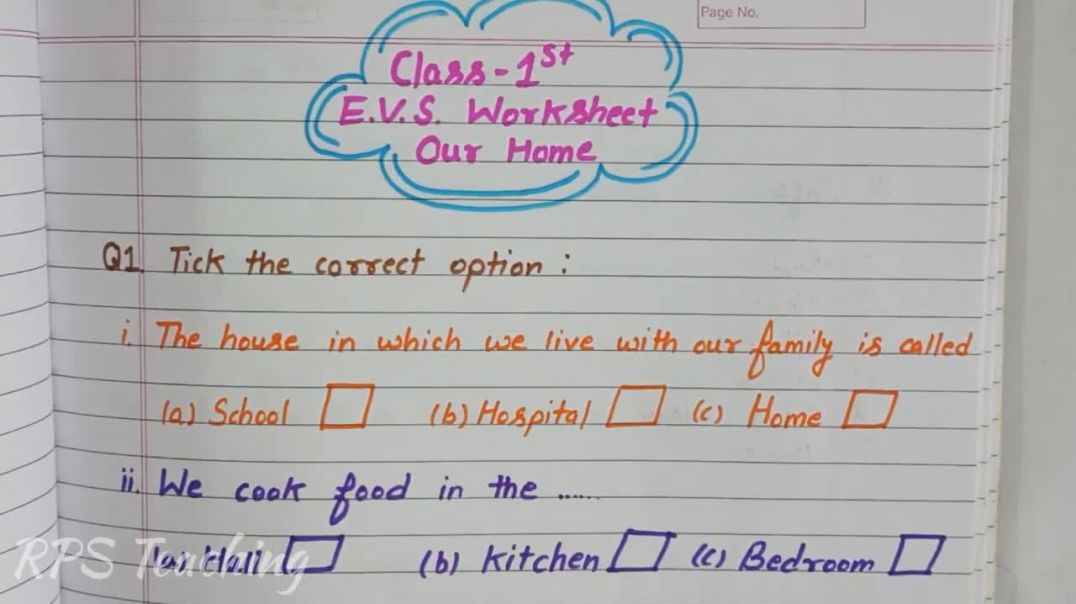 Page No.
Class-1st
E.V.S. Worksheet
Our Home
Q1. Tick the correct option :
i. The house in which we live with our family is called
(a) School (b) Hospital (c) Home
ii. We cook food in the ......
(a) Hall (b) Kitchen (c) Bedroom
RPS Teaching